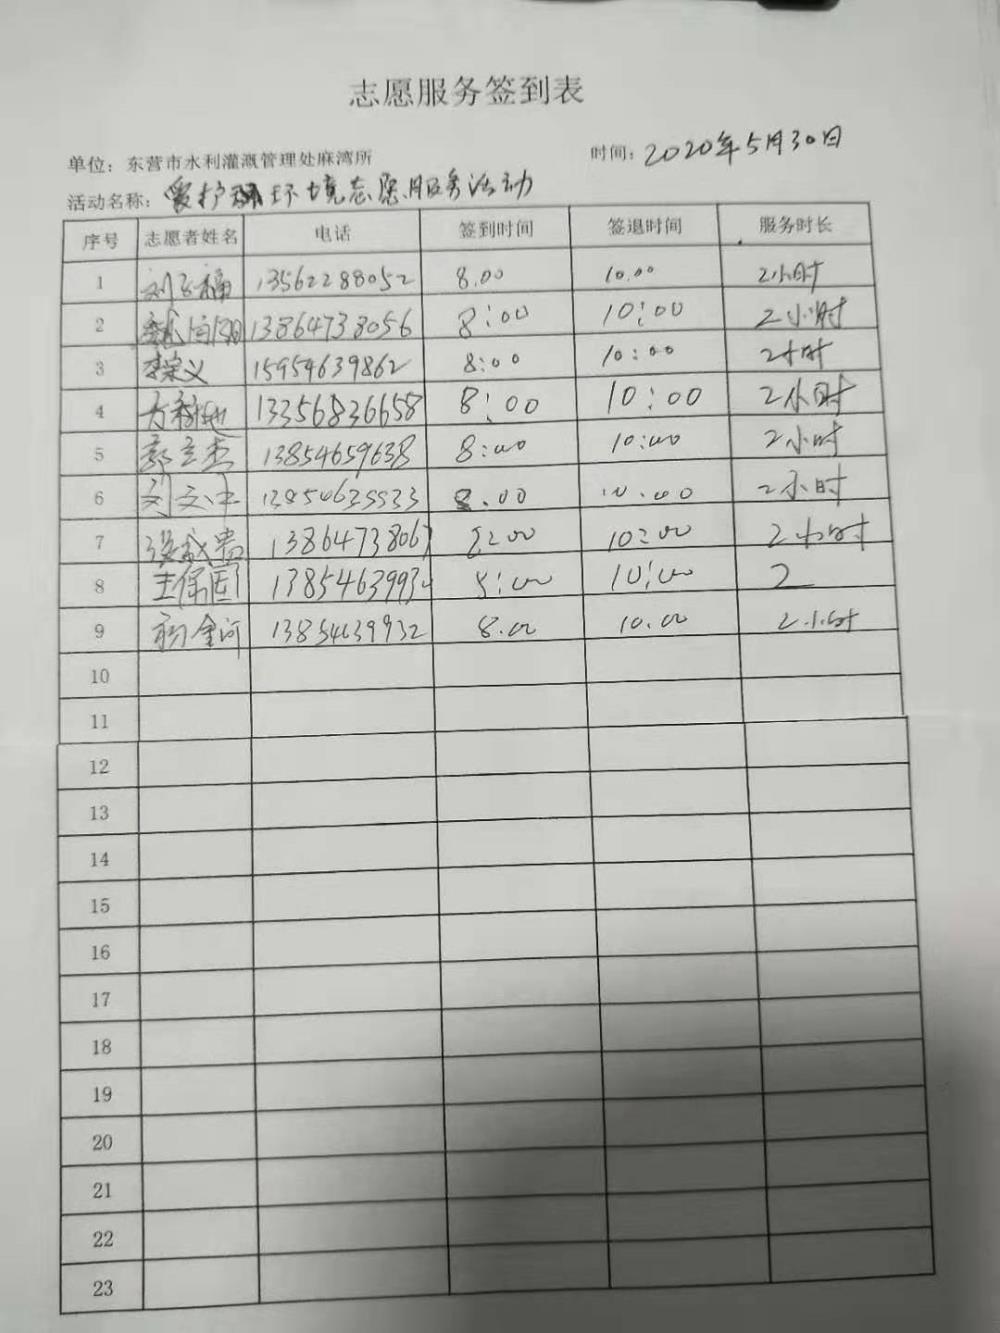 志愿服务签到表
单位：东营市水利灌溉管理处麻湾所 时间：2020年5月30日
活动名称：爱护环境志愿服务活动
序号 志愿者姓名 电话 签到时间 签退时间 服务时长
1 13562288052 8.00 10.00 2小时
2 13864738056 8:00 10:00 2小时
3 李宗义 15954639862 8:00 10:00 2小时
4 13356836658 8:00 10:00 2小时
5 郭立杰 13854659638 8:00 10:00 2小时
6 8.00 10.00 2小时
7 张成贵 1386473806 8:00 10:00 2小时
8 王保国 8:00 10:00 2
9 杨金河 13854639932 8.00 10.00 2小时
10
11
12
13
14
15
16
17
18
19
20
21
22
23